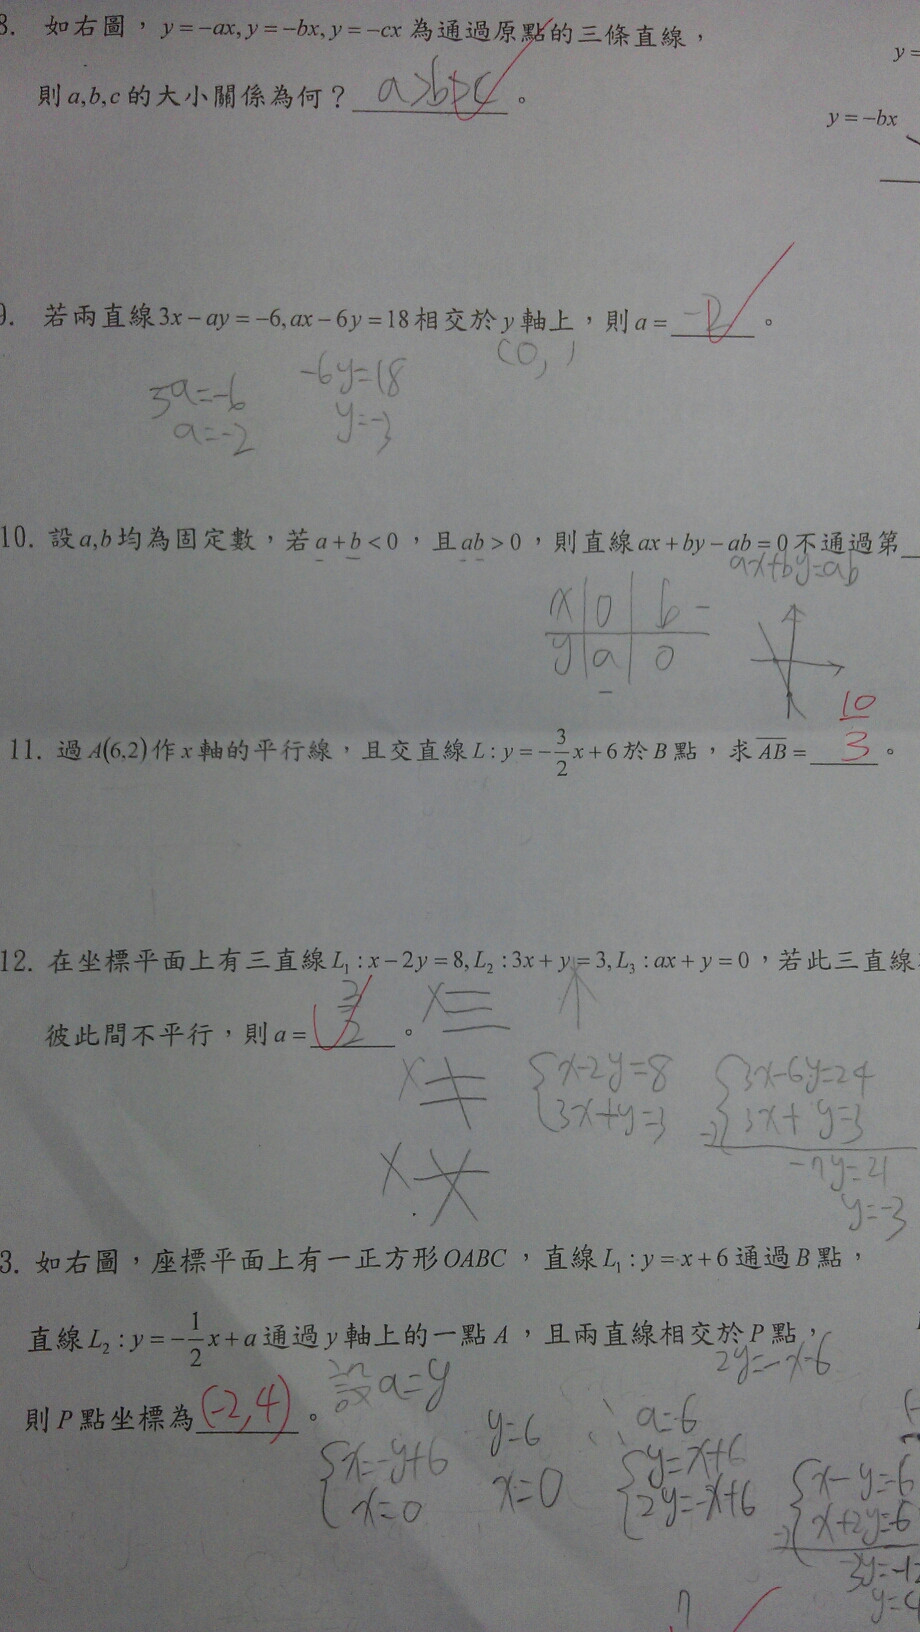 8. 如右圖，y=-ax, y=-bx, y=-cx 為通過原點的三條直線，
y=
則 a,b,c 的大小關係為何？ a>b>c 。
y=-bx
9. 若兩直線 3x-ay=-6, ax-6y=18 相交於 y 軸上，則 a= -2 。
(0, )
3a=-6
-6y=18
a=-2
y=-3
10. 設 a,b 均為固定數，若 a+b<0，且 ab>0，則直線 ax+by-ab=0 不通過第
ax+by=ab
x 0 b -
y a 0
11. 過 A(6,2) 作 x 軸的平行線，且交直線 L: y=-3/2x+6 於 B 點，求 AB= 10/3 。
12. 在坐標平面上有三直線 L₁: x-2y=8, L₂: 3x+y=3, L₃: ax+y=0，若此三直線
彼此間不平行，則 a= 3/2 。
x-2y=8
3x+y=3
3x-6y=24
3x+y=3
-7y=21
y=-3
3. 如右圖，座標平面上有一正方形 OABC，直線 L₁: y=x+6 通過 B 點，
直線 L₂: y=-1/2x+a 通過 y 軸上的一點 A，且兩直線相交於 P 點，
2y=-x-6
設 a=y
則 P 點坐標為 (-2,4) 。
x=-y+6
x=0
y=6
x=0
∴ a=6
y=x+6
2y=-x+6
x-y=-6
x+2y=6
-3y=-12
y=4